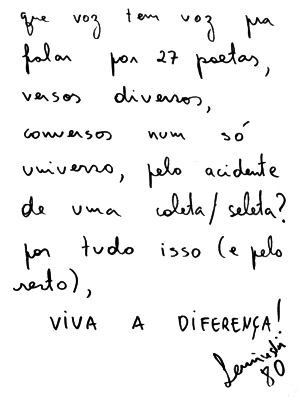 que voz tem voz pra
falar por 27 poetas,
versos diversos,
conversos num só
universo, pelo acidente
de uma coleta/seleta?
por tudo isso (e pelo
resto),
VIVA A DIFERENÇA!
Leminski
80